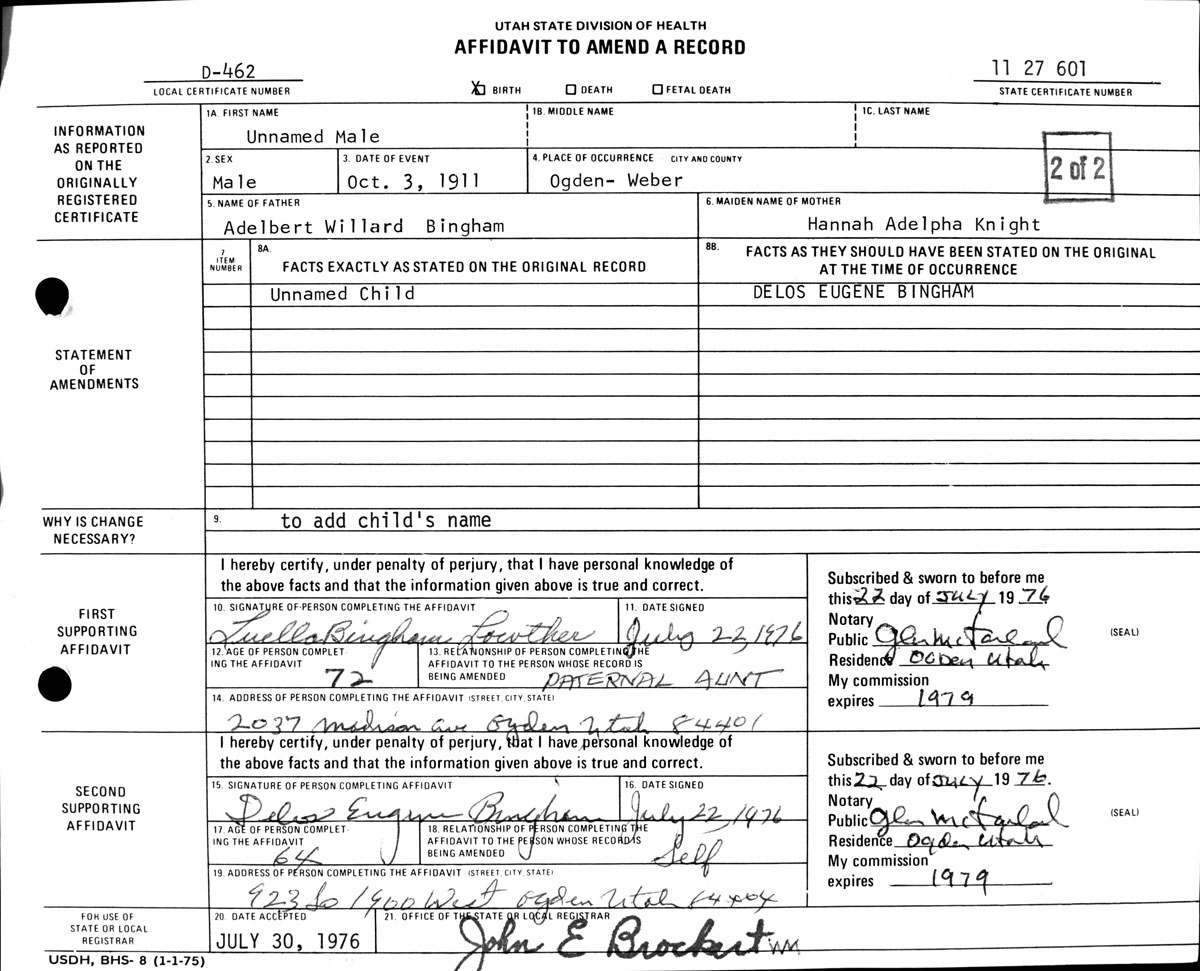 UTAH STATE DIVISION OF HEALTH
AFFIDAVIT TO AMEND A RECORD
D-462
LOCAL CERTIFICATE NUMBER
X BIRTH DEATH FETAL DEATH
11 27 601
STATE CERTIFICATE NUMBER
INFORMATION
AS REPORTED
ON THE
ORIGINALLY
REGISTERED
CERTIFICATE
1A. FIRST NAME
Unnamed Male
1B. MIDDLE NAME
1C. LAST NAME
2. SEX
Male
3. DATE OF EVENT
Oct. 3, 1911
4. PLACE OF OCCURRENCE - CITY AND COUNTY
Ogden- Weber
2 of 2
5. NAME OF FATHER
Adelbert Willard Bingham
6. MAIDEN NAME OF MOTHER
Hannah Adelpha Knight
STATEMENT
OF
AMENDMENTS
7
ITEM
NUMBER
8A.
FACTS EXACTLY AS STATED ON THE ORIGINAL RECORD
8B.
FACTS AS THEY SHOULD HAVE BEEN STATED ON THE ORIGINAL
AT THE TIME OF OCCURRENCE
Unnamed Child
DELOS EUGENE BINGHAM
WHY IS CHANGE
NECESSARY?
9.
to add child's name
FIRST
SUPPORTING
AFFIDAVIT
I hereby certify, under penalty of perjury, that I have personal knowledge of
the above facts and that the information given above is true and correct.
10. SIGNATURE OF PERSON COMPLETING THE AFFIDAVIT
Luella Bingham Lowther
11. DATE SIGNED
July 22, 1976
12. AGE OF PERSON COMPLET-
ING THE AFFIDAVIT
72
13. RELATIONSHIP OF PERSON COMPLETING THE
AFFIDAVIT TO THE PERSON WHOSE RECORD IS
BEING AMENDED
PATERNAL AUNT
14. ADDRESS OF PERSON COMPLETING THE AFFIDAVIT (STREET, CITY, STATE)
2037 Madison ave Ogden Utah 84401
Subscribed & sworn to before me
this 22 day of JULY 19 76
Notary
Public Glen McFarland
Residence Ogden Utah
My commission
expires 1979
(SEAL)
SECOND
SUPPORTING
AFFIDAVIT
I hereby certify, under penalty of perjury, that I have personal knowledge of
the above facts and that the information given above is true and correct.
15. SIGNATURE OF PERSON COMPLETING AFFIDAVIT
Delos Eugene Bingham
16. DATE SIGNED
July 22, 1976
17. AGE OF PERSON COMPLET-
ING THE AFFIDAVIT
64
18. RELATIONSHIP OF PERSON COMPLETING THE
AFFIDAVIT TO THE PERSON WHOSE RECORD IS
BEING AMENDED
Self
19. ADDRESS OF PERSON COMPLETING THE AFFIDAVIT (STREET, CITY, STATE)
923 So 1900 West Ogden Utah 84404
Subscribed & sworn to before me
this 22 day of JULY 19 76.
Notary
Public Glen McFarland
Residence Ogden Utah
My commission
expires 1979
(SEAL)
FOR USE OF
STATE OR LOCAL
REGISTRAR
20. DATE ACCEPTED
JULY 30, 1976
21. OFFICE OF THE STATE OR LOCAL REGISTRAR
John E Brockert WM
USDH, BHS- 8 (1-1-75)